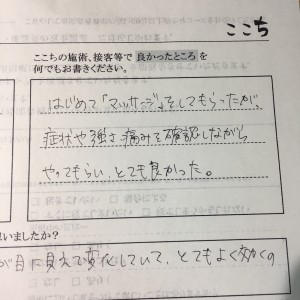 ここち
ここちの施術、接客等で良かったところを
何でもお書きください。
はじめて「マッサージ」をしてもらったが、
症状や強さ痛みを確認しながら
やってもらい、とても良かった。
いましたか?
が目に見えて変化していて、とてもよく効くの